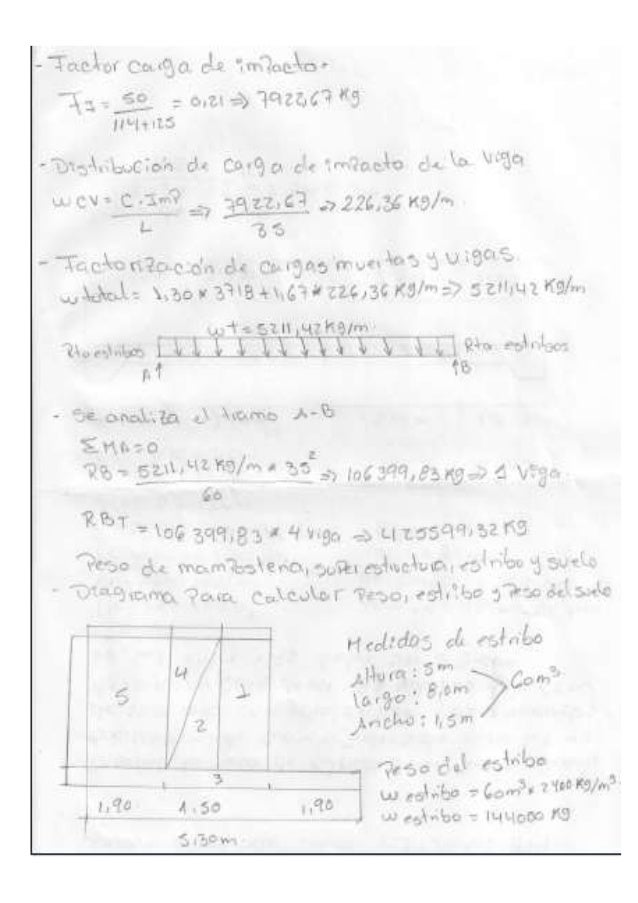 - Factor carga de impacto.
FI = 50 / 114+125 = 0,21 => 7922,67 Kg
- Distribución de carga de impacto de la viga
w CV = C. Imp / L => 7922,67 / 35 => 226,36 Kg/m.
- Factorización de cargas muertas y vigas.
w total = 1,30 * 3718 + 1,67 * 226,36 Kg/m => 5211,42 Kg/m
wt = 5211,42 Kg/m.
Rta estribos Rta estribos
A↑ ↑B
- Se analiza el tramo A-B
ΣMA=0
RB = 5211,42 KG/m * 35² / 60 => 106399,83 KG => 1 Viga.
RBT = 106 399,83 * 4 viga => 425599,32 KG
Peso de mampostería, super estructura, estribo y suelo
- Diagrama Para calcular Peso, estribo y Peso del suelo
Medidas de estribo
Altura: 5m
largo: 8,0m
Ancho: 1,5m
60m³
5 4 1
2
3
1,90 1.50 1,90
5,30m.
Peso del estribo
w estribo = 60m³ x 2400 KG/m³.
w estribo = 144000 KG